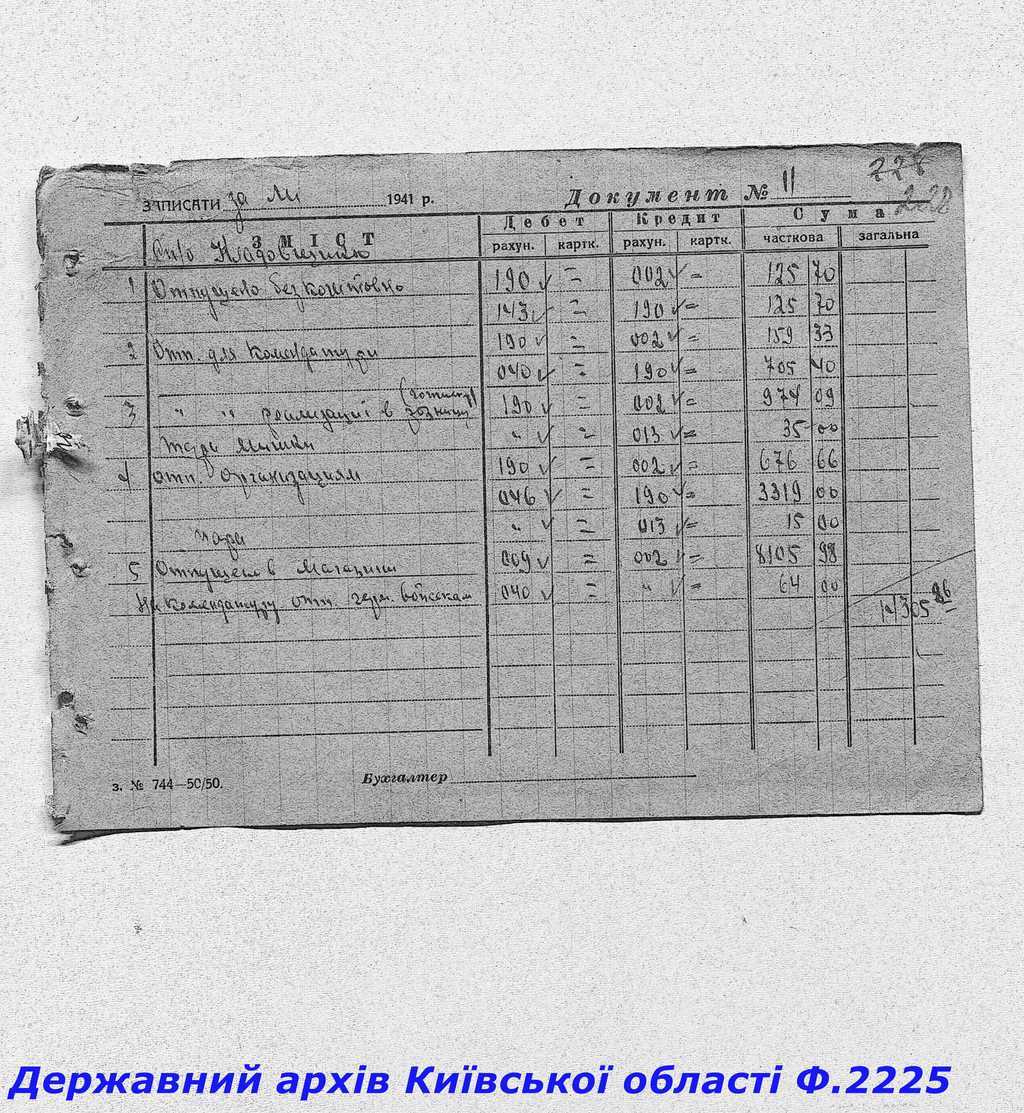 228
228
ЗАПИСАТИ за 1941 р. Документ № 11
Дебет Кредит Сума
ЗМІСТ рахун. картк. рахун. картк. часткова загальна
1 Отпущено безкоштовно 190 = 002 = 125 70
143 = 190 = 125 70
2 Отп. для комендатури 190 = 002 = 159 33
040 = 190 = 705 40
3 " " реализації в 190 = 002 = 974 09
Тара мишки " = 013 = 35 00
4 отп. организациям 190 = 002 = 676 66
046 = 190 = 3319 00
тара " = 013 = 15 00
5 Отпущено в магазини 009 = 002 = 8105 98
На комендатуру отп. герм. войскам 040 = " = 64 00
14305 86
Бухгалтер
з. № 744—50/50.
Державний архів Київської області Ф.2225